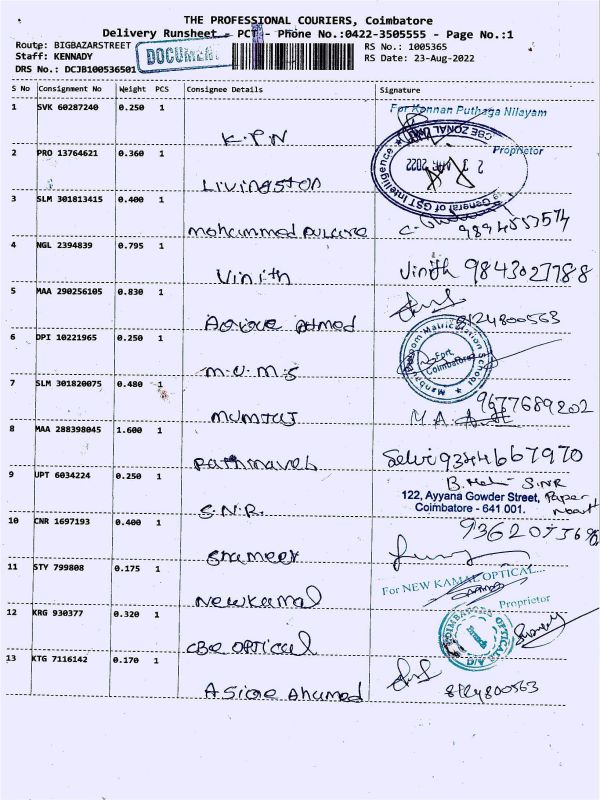 THE PROFESSIONAL COURIERS, Coimbatore
Delivery Runsheet - PCT - Phone No.:0422-3505555 - Page No.:1
Route: BIGBAZARSTREET
Staff: KENNADY
DRS No.: DCJB100536501
DOCUMENT
RS No.: 1005365
RS Date: 23-Aug-2022
S No Consignment No Weight PCS Consignee Details Signature
1 SVK 60287240 0.250 1 K.P.N
For Kannan Puthaga Nilayam
Proprietor
General of GST Intelligence
CBE ZONAL
2 PRO 13764621 0.360 1 Livingston
3 SLM 301813415 0.400 1 mohammed
4 NGL 2394839 0.795 1 Vinith Vinith 9843027788
5 MAA 290256105 0.830 1 8124800563
6 DPI 10221965 0.250 1 m.U.M.S
Matriculation School
Fort
Coimbatore
7 SLM 301820075 0.480 1 mumtaj M.A 9677689202
8 MAA 288398045 1.600 1 Selvi 9344667970
9 UPT 6034224 0.250 1 S.N.R. S.N.R
122, Ayyana Gowder Street, Paper
Coimbatore - 641 001. mart
10 CNR 1697193 0.400 1 Shameer
11 STY 799808 0.175 1 Newkamal
For NEW KAMAL OPTICAL...
Proprietor
12 KRG 930377 0.320 1 CBE OPTICAL
COIMBATORE OPTICALS
13 KTG 7116142 0.170 1 Ahamed 8124800563